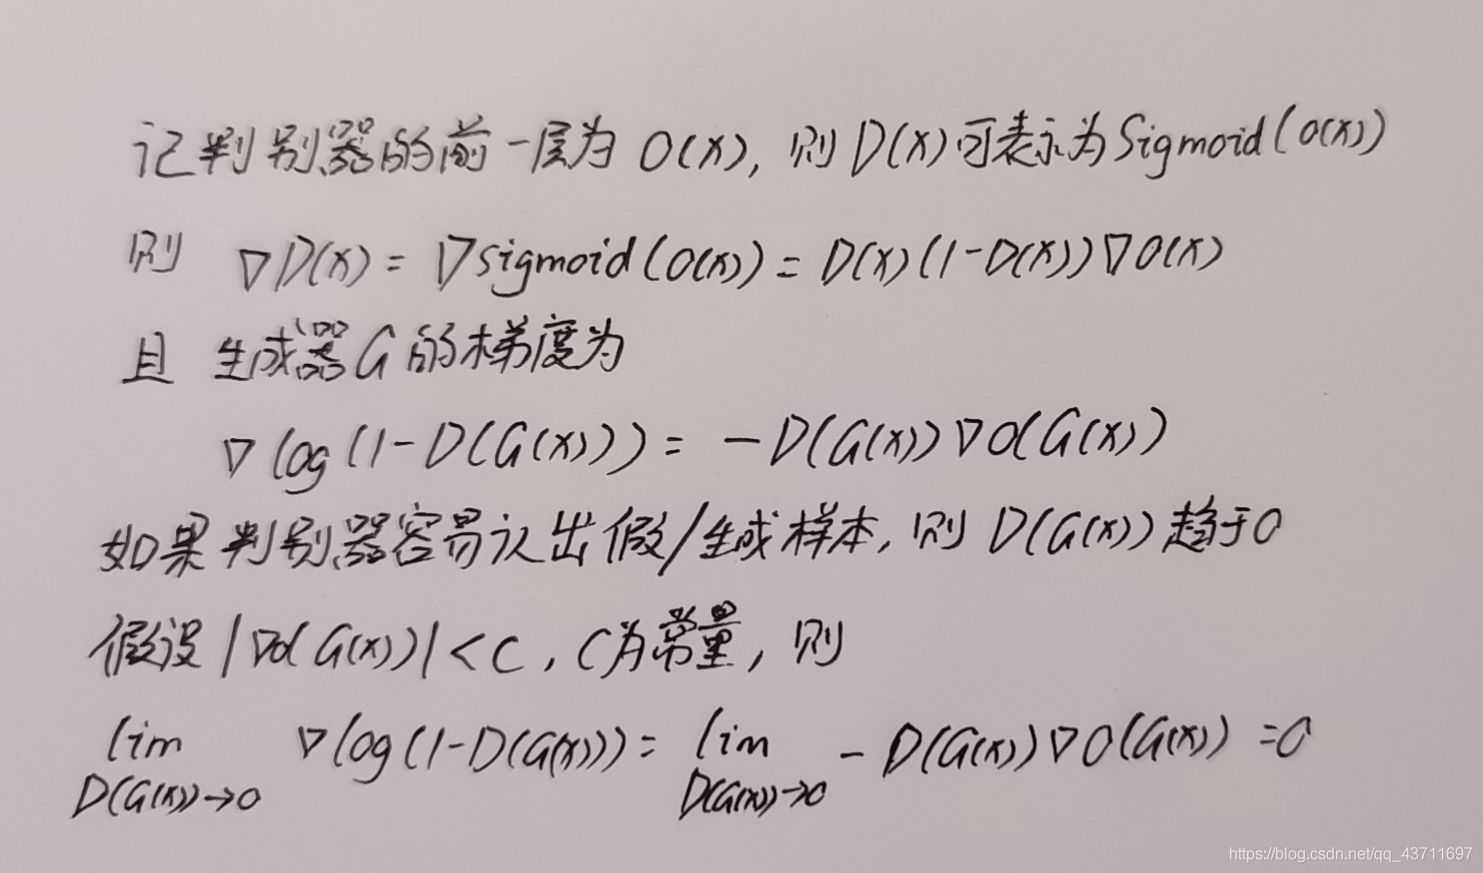 记判别器的前一层为 O(x), 则 D(x)可表示为Sigmoid(o(x))
则 ∇D(x) = ∇sigmoid(o(x)) = D(x)(1-D(x))∇O(x)
且 生成器G的梯度为
∇log(1-D(G(x))) = -D(G(x))∇O(G(x))
如果判别器容易认出假/生成样本, 则 D(G(x))趋于0
假设 |∇O(G(x))| < C, C为常量, 则
lim ∇log(1-D(G(x))) = lim -D(G(x))∇O(G(x)) = 0
D(G(x))→0 D(G(x))→0
https://blog.csdn.net/qq_43711697